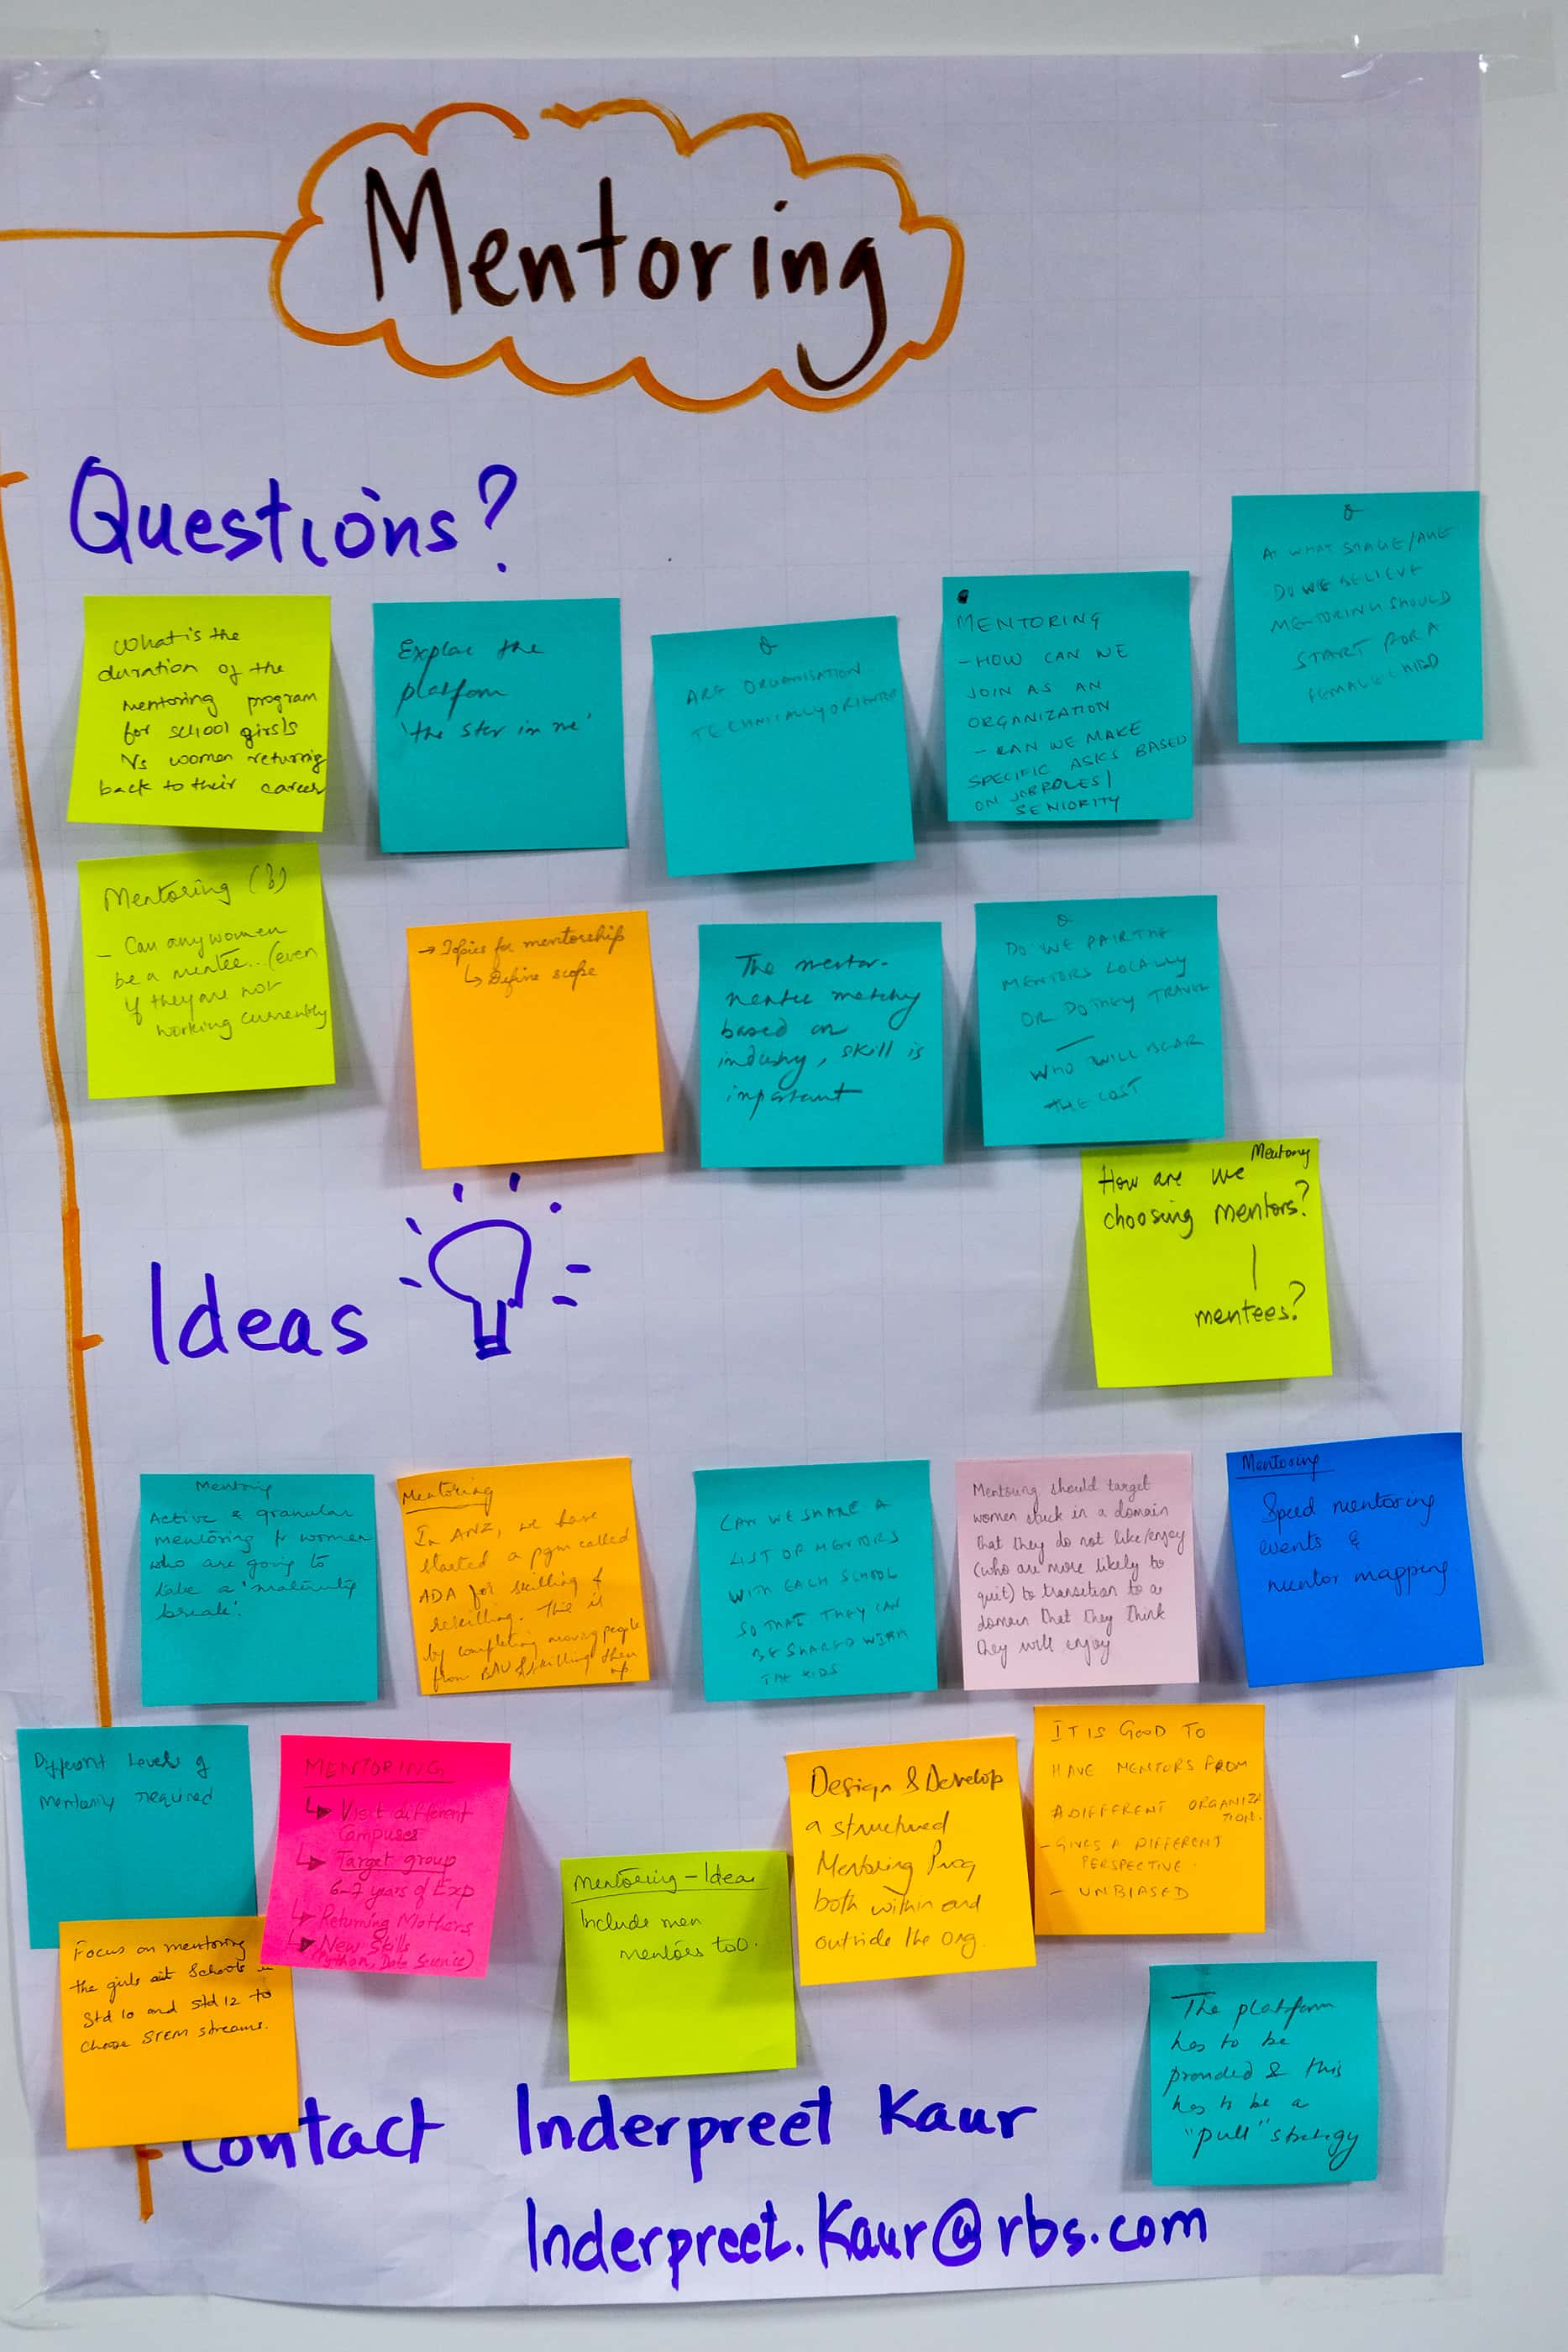 Mentoring
Questions?
What is the
duration of the
mentoring program
for school girsls
Vs women returing
back to their career
Explore the
platform
'the star in me'
Q
ARE ORGANISATION
TECHNICALLY ORIENTED
MENTORING
- HOW CAN WE
JOIN AS AN
ORGANIZATION
- CAN WE MAKE
SPECIFIC ASKS BASED
ON JOBROLES /
SENIORITY
Q
AT WHAT STAGE/AGE
DO WE BELIEVE
MENTORING SHOULD
START FOR A
FEMALE CHILD
Mentoring (?)
- Can any women
be a mentee.. (even
if they are not
working currently
→ Topics for mentorship
↳ Define scope
The mentor-
mentee matchg
based on
industry, skill is
important
Q
DO WE PAIR THE
MENTORS LOCALLY
OR DO THEY TRAVEL
—
WHO WILL BEAR
THE COST
Mentoring
How are we
choosing mentors?
|
mentees?
Ideas
Mentoring
Active & granular
mentoring for women
who are going to
take a 'maternity
break'.
Mentoring
In ANZ, we have
started a pgm called
ADA for skilling &
reskilling. This is
by completing moving people
from BAU & skilling them
up
CAN WE SHARE A
LIST OF MENTORS
WITH EACH SCHOOL
SO THAT THEY CAN
BE SHARED WITH
THE KIDS
Mentoring should target
women stuck in a domain
that they do not like/enjoy
(who are more likely to
quit) to transition to a
domain that they think
they will enjoy
Mentoring
Speed mentoring
events &
mentor mapping
Different levels of
mentoring required
MENTORING
↳ Visit different
Campuses
↳ Target group
6-7 years of Exp
↳ Returning Mothers
↳ New Skills
(Python, Data Science)
Mentoring - Idea
Include men
mentors too.
Design & Develop
a structured
Mentoring Prog
both within and
outside the org.
IT IS GOOD TO
HAVE MENTORS FROM
A DIFFERENT ORGANIZA
TION.
- GIVES A DIFFERENT
PERSPECTIVE.
- UNBIASED
Focus on mentoring
the girls at Schools in
Std 10 and Std 12 to
choose STEM streams.
The platform
has to be
provided & this
has to be a
"pull" strategy
Contact Inderpreet Kaur
Inderpreet.Kaur@rbs.com